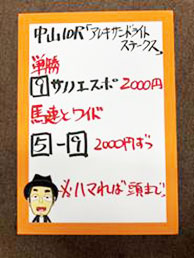 中山10R「アレキサンドライト
ステークス」
単勝
9 サノノエスポ 2000円
馬連とワイド
5-9 2000円ずつ
※ハマれば「頭まで」